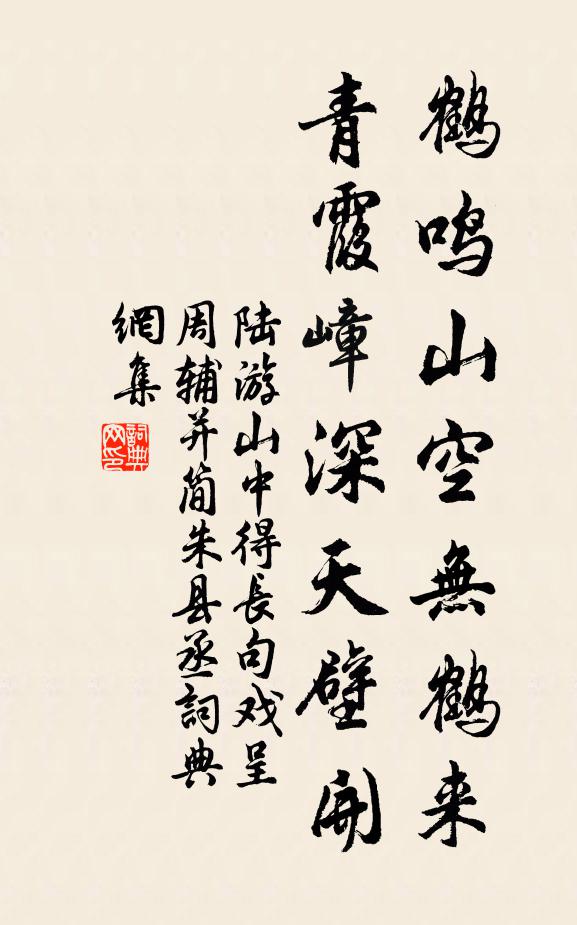 鹤鸣山空無鹤来
青霞嶂深天壁開
陆游山中得長句戏呈
周辅并简朱县丞詞典
網集
詞典
网印